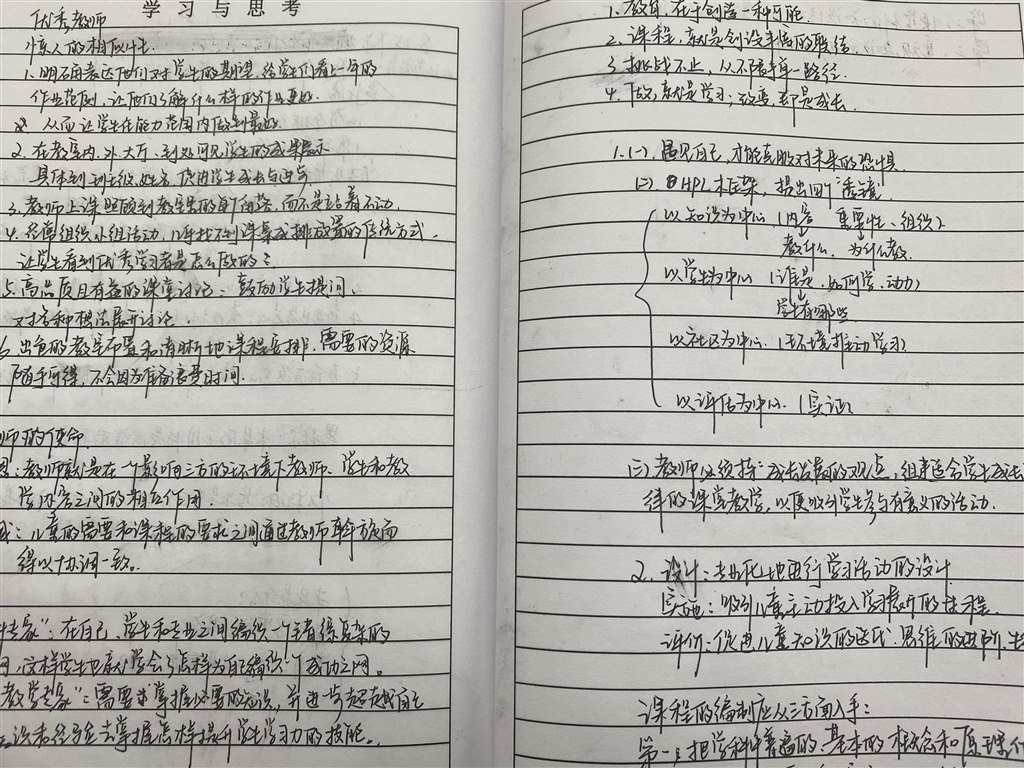 学习与思考
优秀教师
惊人的相似性
1.明确表达他们对学生的期望,给学生们看上一年的
作业范例,让他们了解什么样的作业更好.
从而让学生在能力范围内做到最好.
2.在教室内、外大厅、到处可见学生的成果展示
具体到班级、姓名
3.教师上课照顾到教室里的每个角落,而不是站着不动.
4.经常组织小组活动,几乎找不到课桌成排放置的传统方式.
让学生看到优秀学习者是怎么做的?
5.高品质且有益的课堂讨论、鼓励学生提问、
对各种想法展开讨论.
出色的教室布置和清晰地课程安排,需要的资源
随手可得,不会因为准备浪费时间.
师的使命
教师就是在一个影响三方的环境下教师、学生和教
学内容之间的相互作用.
儿童的需要和课程的要求之间通过教师
得以协调一致。
专家":在自己、学生和专业之间编织一个
网,这样学生也就学会了怎样为自己编织一个成功之网。
教学专家":需要掌握必要的知识,并进一步超越自己
去掌握怎样提升学生学习力的技能。
1.教育,在于创造一种可能.
2.课程,就是创设事情的联结
3.挑战不止,从不单一路径.
4.做,就是学习,改变,即是成长.
1.(一).遇见自己,才能克服对未来的恐惧.
(二) HPL框架,提出四个"透镜"
以知识为中心(内容 重要性、组织)
教什么,为什么教.
以学生为中心(谁是、如何学、动力)
学生有哪些
以社区为中心.(环境推动学习)
以评估为中心.(实证)
(三)教师必须持"成长发展的观点,组建适合学生成长
的课堂教学,以便吸引学生参与有意义的活动.
2.设计:专业化地进行学习活动的设计
实施:吸引儿童主动投入学习教师的课程.
评价:促进儿童知识的达成、思维的进阶、
课程的编制应从三方面入手:
第一:把学科中普遍的、基本的概念和原理